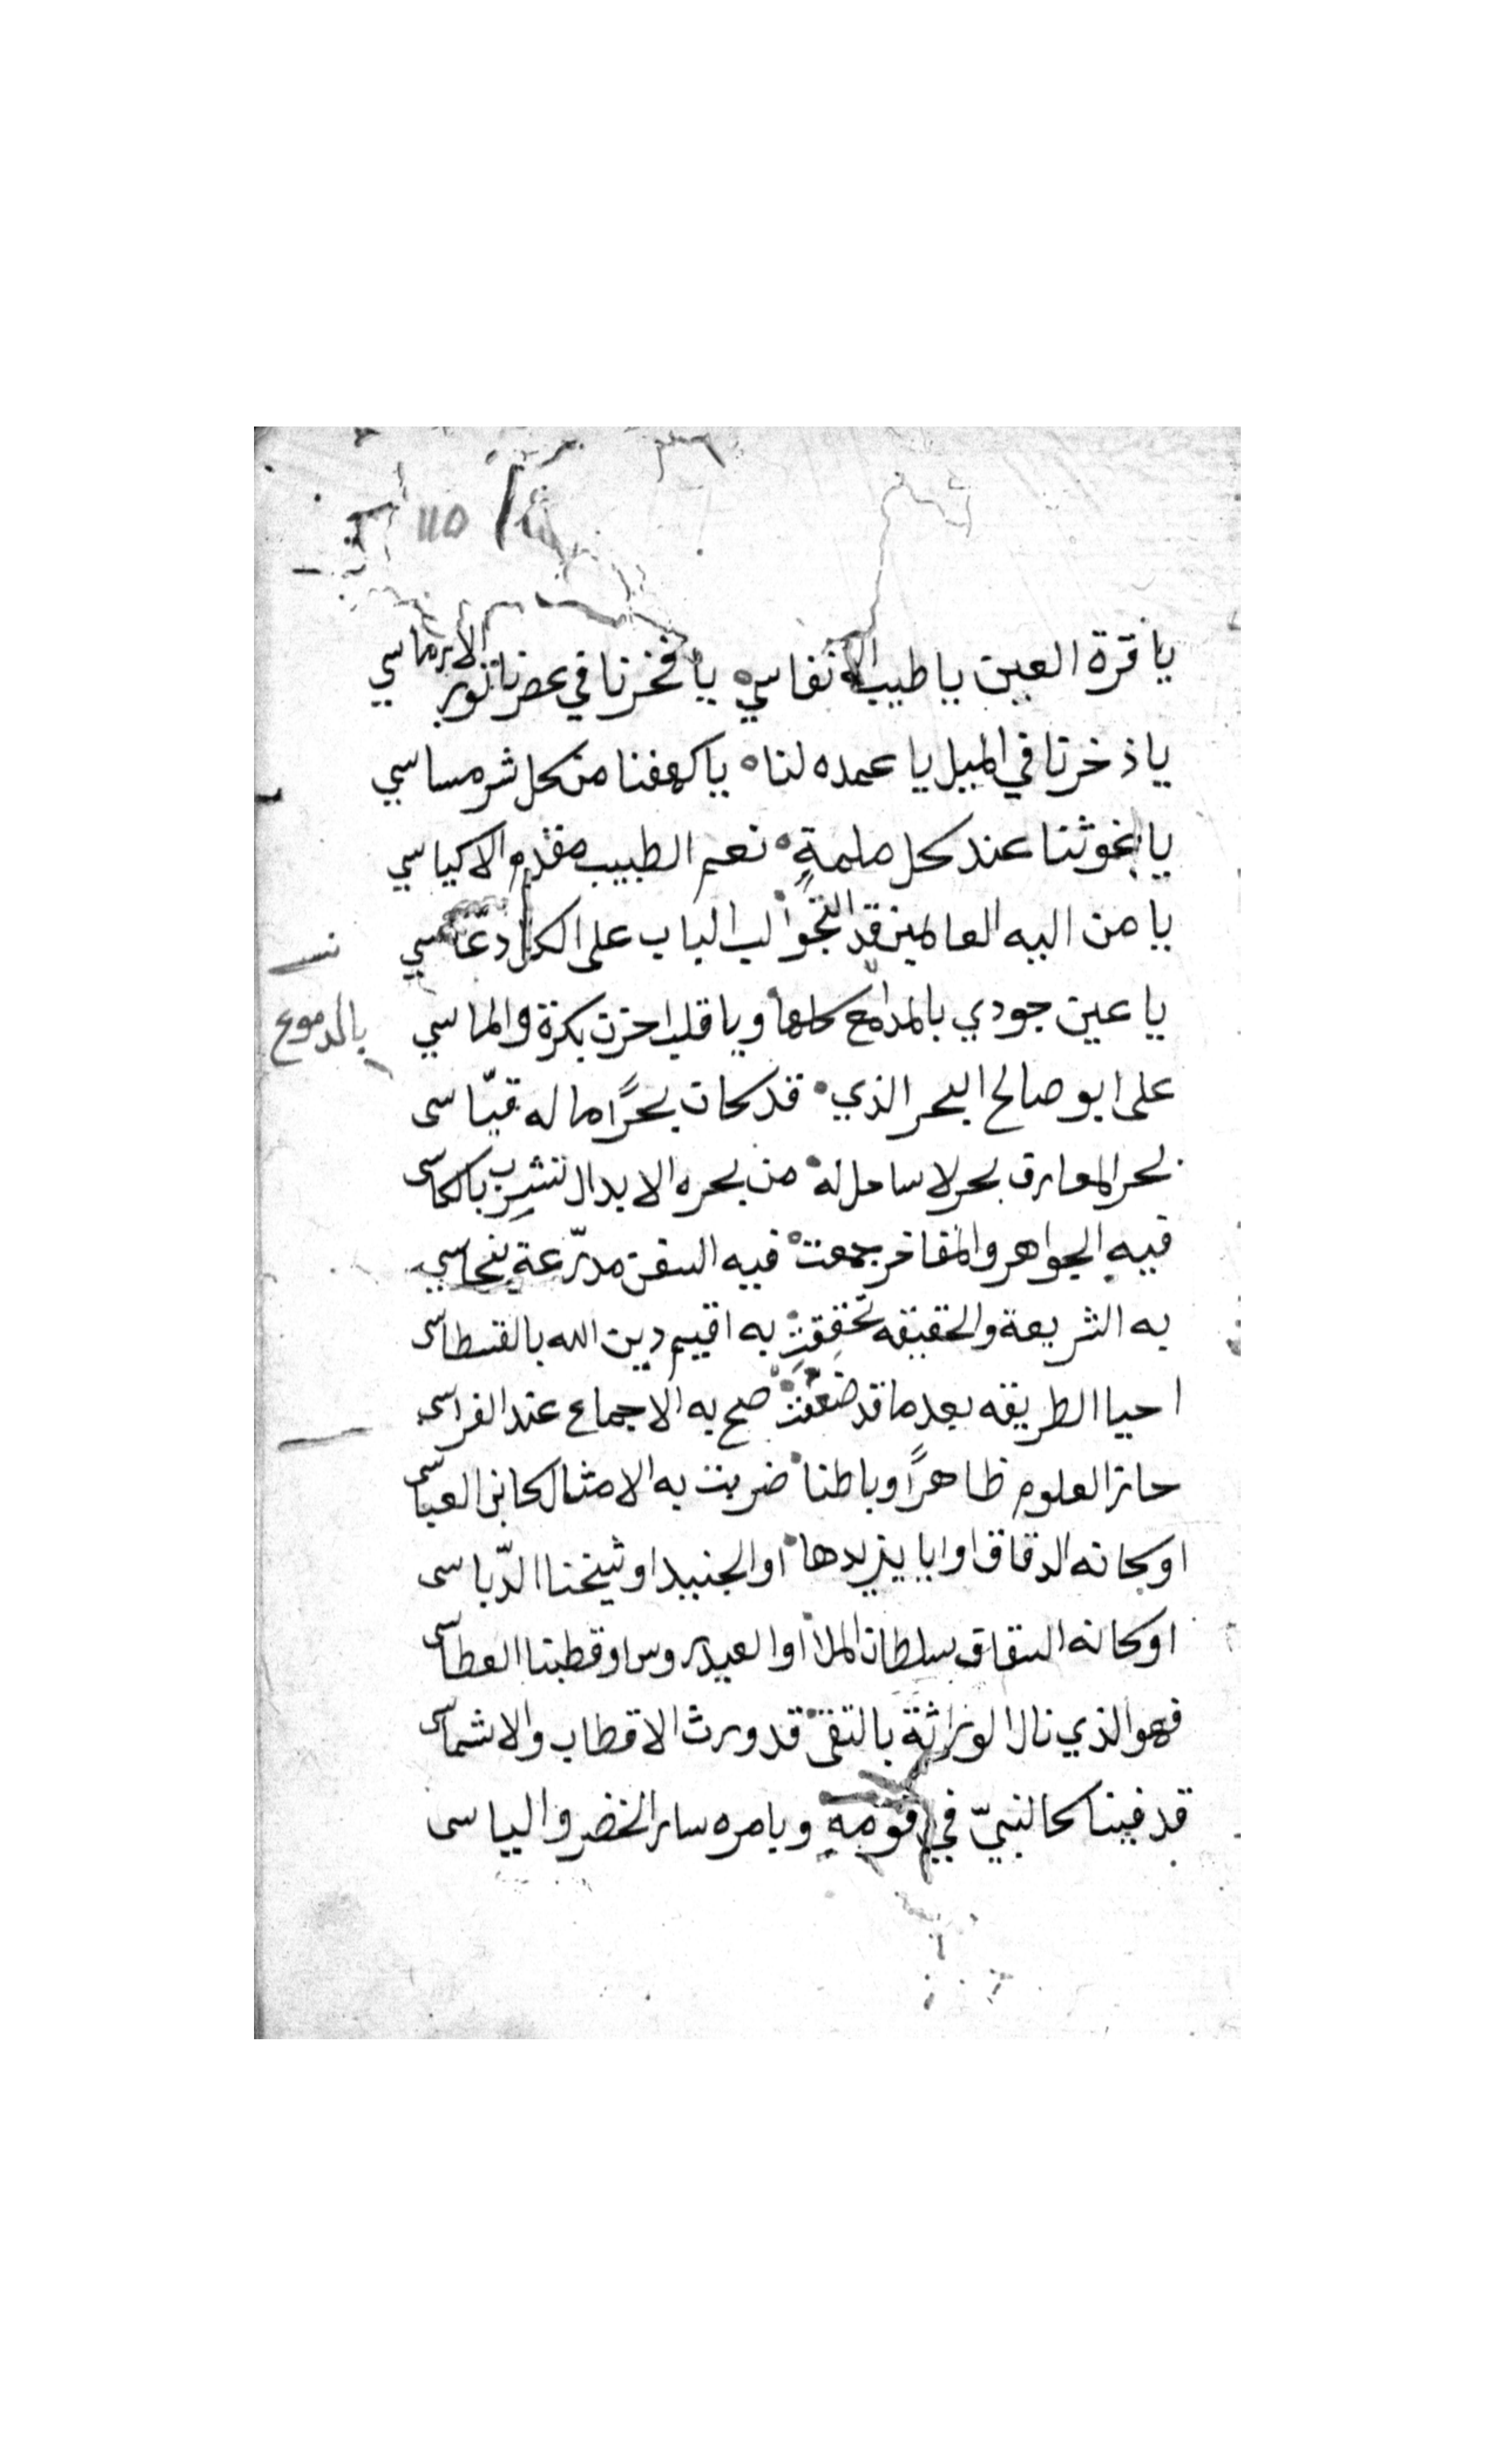 ١١٥
يا قرة العين يا طيب الانفاسي يا فخرنا في عصرنا نور الارماسي
يا ذخرنا في الميل يا عمده لنا يا كهفنا من كل شر مساسي
يا غوثنا عند كل ملمةٍ نعم الطبيب مقدم الاكياسي
يا من اليه العالمين قد التجوا الباب على الكل
يا عين جودي بالمدامع كلها ويا قلب احزن بكرة والماسي
بالدموع
على ابو صالح البحر الذي قد كان بحرًا ما له قيّاسى
بحر المعارف بحر لا ساحل له من بحره الابدال تشرب بالكاسى
فيه الجواهر والمفاخر جمعت فيه السفن مدرّعة بنحاسي
به الشريعة والحقيقه تحققت به اقيم دين الله بالقسطاسى
احيا الطريقه بعد ما قد ضعفت صح به الاجماع عند الفراسى
حاز العلوم ظاهرًا وباطنا ضربت به الامثال كابن العباسى
او كانه الدقاق او ابا يزيدها او الجنيد او شيخنا الدّباسى
او كانه السقاف سلطان الملا او العيدروس او قطبنا العطاسى
فهو الذي نال الوراثة بالتقى قد ورث الاقطاب والاشماسى
قد فينا كالنبيّ في قومه وبامره سار الخضر والياسى